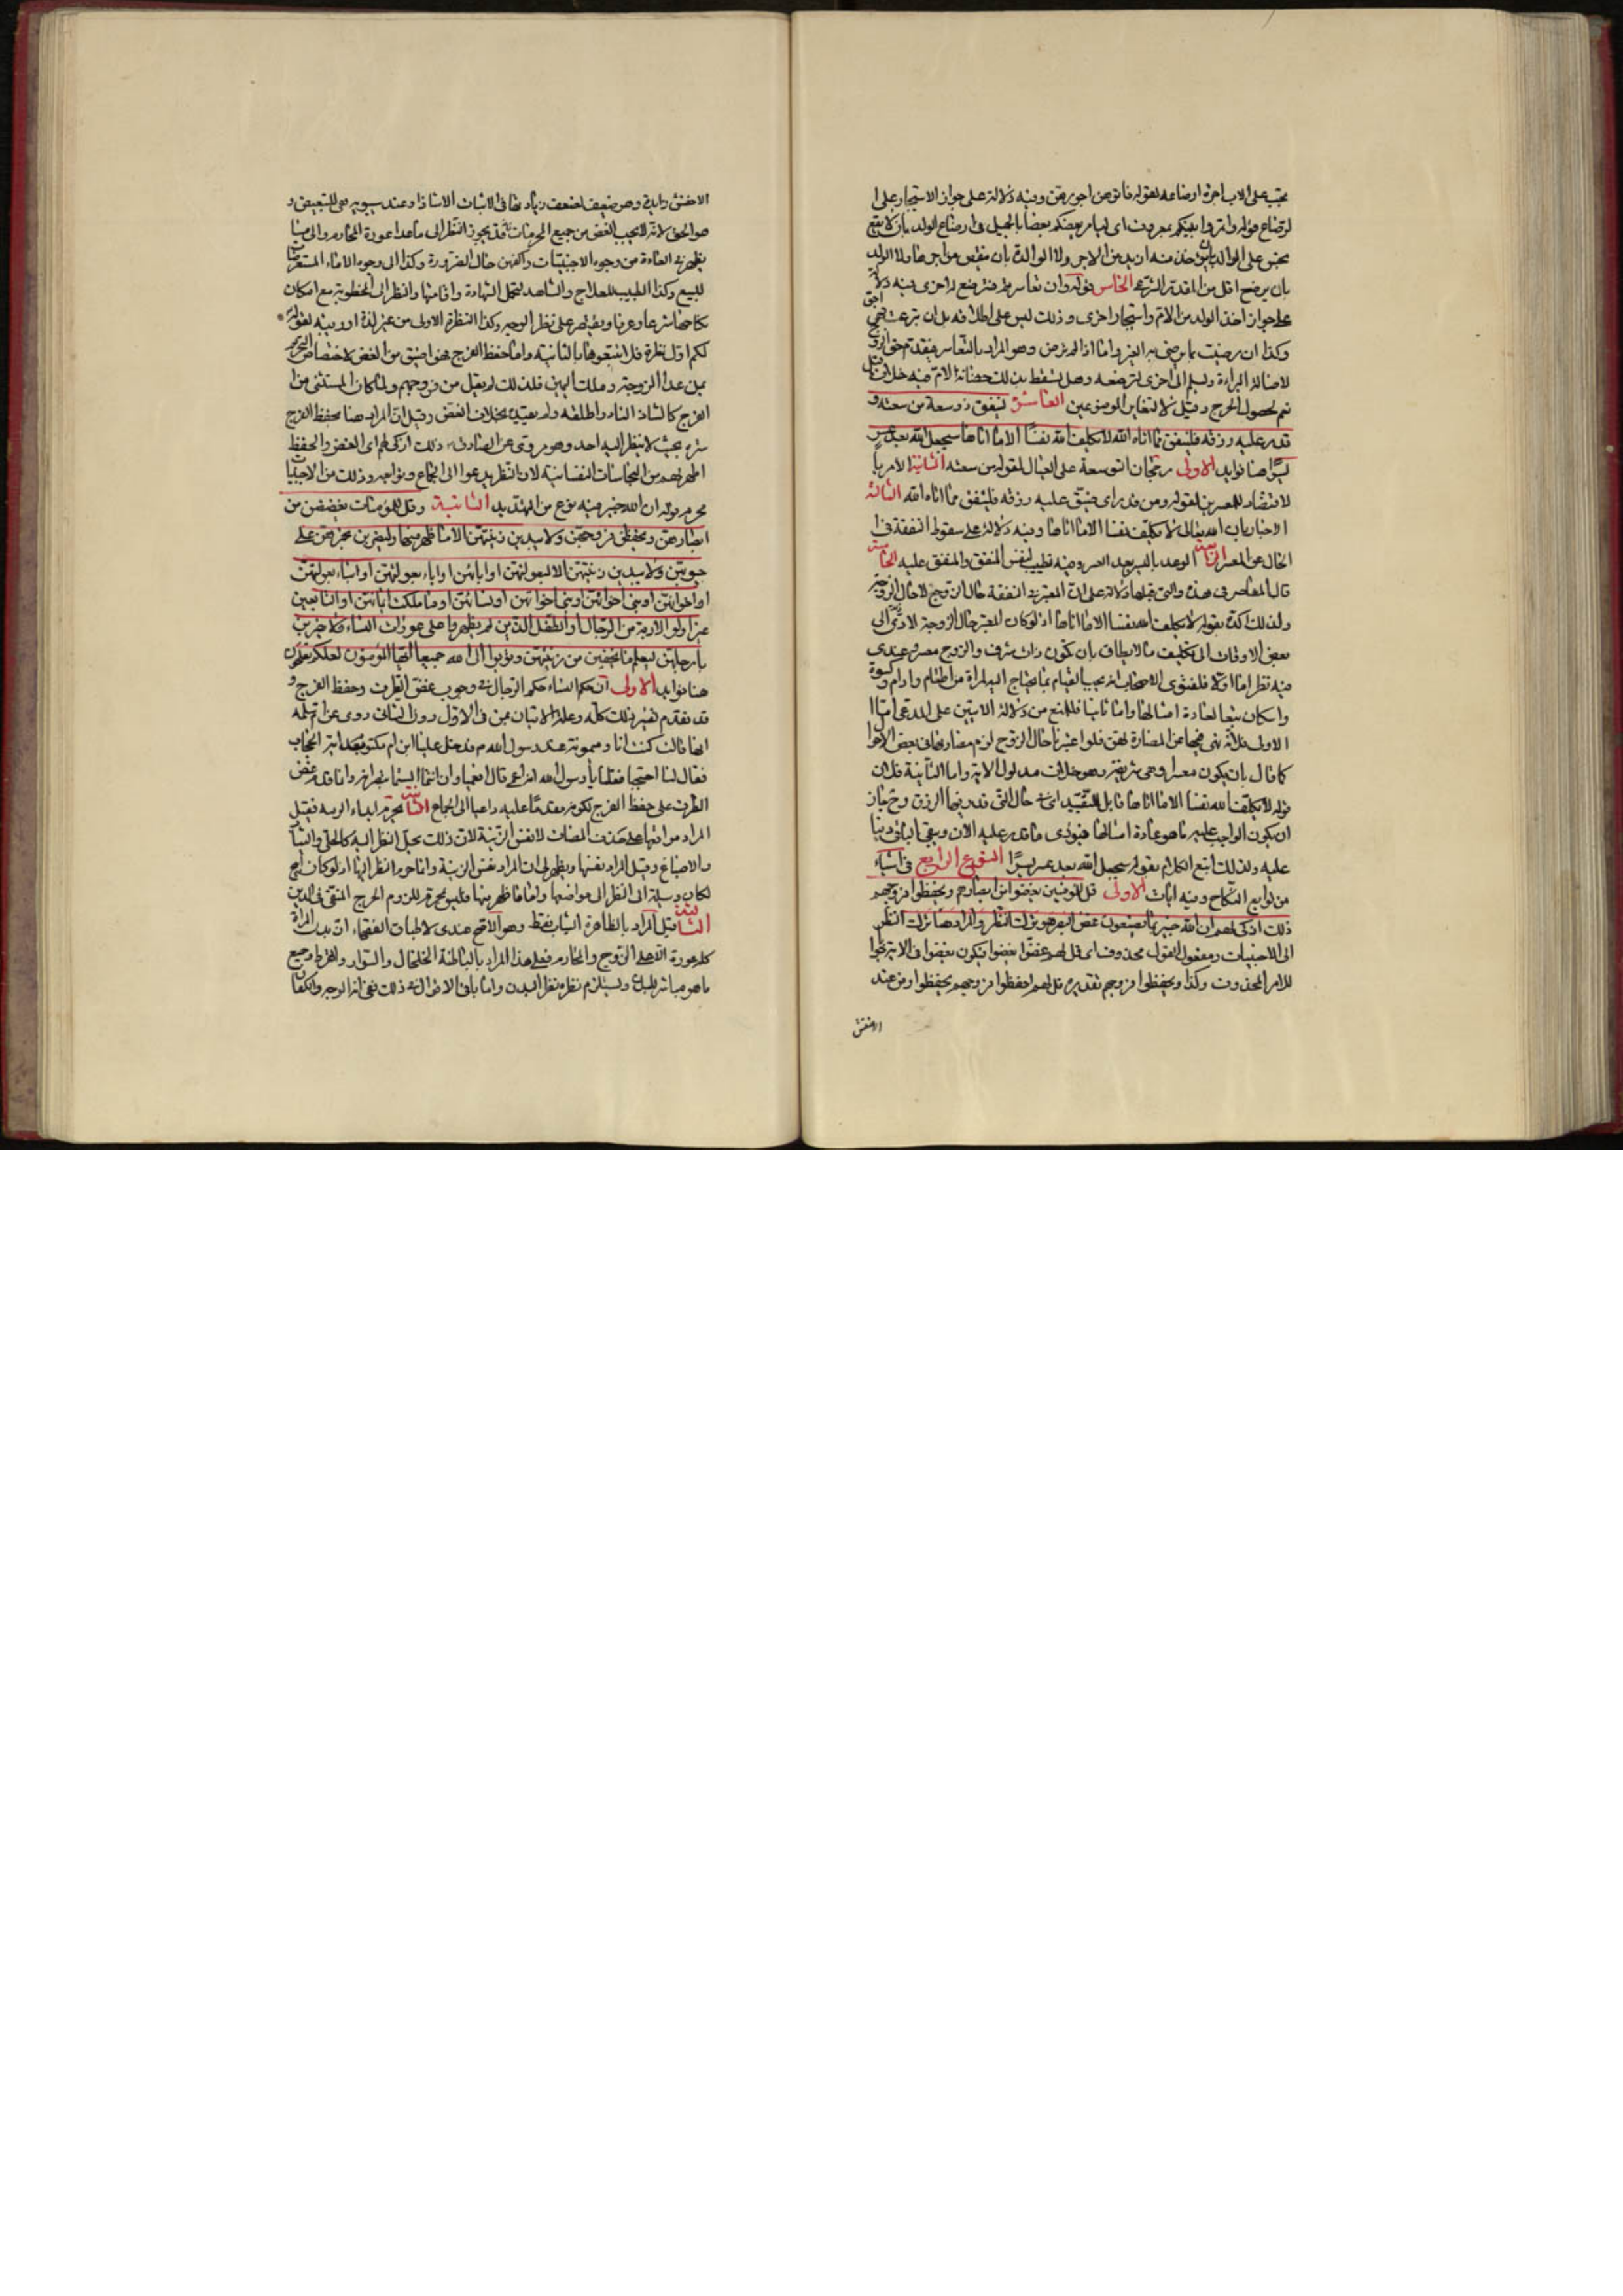 يجب على الاب اجرة ارضاعه لقوله فاتوهن اجورهن وفيه دلالة على جواز الاستيجار على ا
لرضاع قوله وائتمروا بينكم بمعروف اى ليامر بعضكم بعضا بالجميل فى ارضاع الولد بان لا يقع
على الوالد بان منه ازيد من الاجر ولا الوالدة بان ينقص من اجرها ولا الولد
بان يرضع اقل من المقدر الشرعى الخامس قوله وان تعاسرتم فسترضع له اخرى فيه دلالة
على جواز اخذ الولد من الام واستيجار اخرى وذلك ليس على اطلاقه بل ان تبرعت فهى احق
وكذا ان رضيت بما يرضى به الغير واما اذا لم ترض وهو المراد بالتعاسر فيقدم حق الزوج
لاصالة البراءة ويسلم الى اخرى لترضعه وهل يسقط بذلك حضانة الام فيه خلاف قيل
نعم لحصول الحرج وقيل لا لتغاير الموضوعين العاشرة لينفق ذو سعة من سعته و
قدر عليه رزقه فلينفق مما اتاه الله لا يكلف الله نفسا الا ما اتاها سيجعل الله بعد عسر
يسرا هنا فوايد الاولى رجحان التوسعة على العيال لقوله من سعته الثانية الامر با
لاقتصاد للمعسرين لقوله ومن قدر اى ضيق عليه رزقه فلينفق مما اتاه الله الثالثة
الاخبار بان الله تعالى لا يكلف نفسا الا ما اتاها وفيه دلالة على سقوط النفقة فى ا
لحال عن المعسر الرابعة الوعد باليسر بعد العسر وفيه تطييب لنفس المنفق والمنفق عليه الخامسة
قال المعاصر فى هذه والتى قبلها دلالة على ان المعتبر فى النفقة حال الزوج لا حال الزوجة
ولذلك اكده بقوله لا يكلف الله نفسا الا ما اتاها اذ لو كان المعتبر حال الزوجة لادى الى
بعض الاوقات الى تكليف ما لا يطاق بان تكون ذات شرف والزوج معسر وعندى
فيه نظر اما اولا فلفتوى الاصحاب انه يجب القيام بما يحتاج اليه المراة من اطعام وادام وكسوة
واسكان تبعا لعادة امثالها واما ثانيا فللمنع من دلالة الايتين على المدعى اما ا
لاولى فلانه نهى فيها عن المضارة لهن فلو اعتبرنا حال الزوج لزم مضارتها فى بعض الاحوا
كما قال بان يكون معسرا وهى شريفة وهو خلاف مدلول الاية واما الثانية فلان
قوله لا يكلف الله نفسا الا ما اتاها قابل للتقييد اى فى حال التى قدر فيها الرزق وح جاز
ان يكون الواجب عليه ما هو عادة امثالها فيؤدى ما قدر عليه الان ويبقى الباقى دينا
عليه ولذلك اتبع الكلام بقوله سيجعل الله بعد عسر يسرا النوع الرابع فى اشياء
من توابع النكاح وفيه ايات الاولى قل للمومنين يغضوا من ابصارهم ويحفظوا فروجهم
ذلك ازكى لهم ان الله خبير بما يصنعون غض البصر هو ترك النظر والمراد هنا ترك النظر
الى الاجنبيات ومفعول القول محذوف اى قل لهم غضوا يغضوا فيكون يغضوا فى الاية جوابا
للامر المحذوف وكذا ويحفظوا فروجهم تقديره قل لهم احفظوا فروجهم يحفظوا ومن عند
الاخفش
الاخفش زايدة وهو ضعيف لضعف زيادتها فى الاثبات الا شاذا وعند سيبويه هى للتبعيض و
هو الحق لانه لا يجب الغض من جميع المحرمات فقد يجوز النظر الى ما عدا عورة المحارم والى ما
يظهر فى العادة من وجوه الاجنبيات واكفهن حال الضرورة وكذا الى وجوه الاماء المستعرضات
للبيع وكذا الطبيب للعلاج والشاهد لتحمل الشهادة واقامتها والنظر الى المخطوبة مع امكان
نكاحها شرعا وعرفا ويقتصر على نظر الوجه وكذا النظرة الاولى من غير لذة او ريبة لقوله
لكم اول نظرة فلا تتبعوها بالثانية واما حفظ الفرج فهو اضيق من الغض لاختصاص التحريم
بمن عدا الزوجة وملك اليمين فلذلك لم يقل من فروجهم ولما كان المستثنى من ا
لفرج كالشاذ النادر اطلقه ولم يقيده بخلاف الغض وقيل ان المراد هنا بحفظ الفرج
ستره بحيث لا ينظر اليه احد وهو مروى عن الصادق ذلك ازكى لهم اى الغض والحفظ
اطهر لهم من النجاسات النفسانية لان النظر يدعوا الى الجماع وتوابعه وذلك من الاجنبيات
محرم قوله ان الله خبير فيه نوع من التهديد الثانية وقل للمومنات يغضضن من
ابصارهن ويحفظن فروجهن ولا يبدين زينتهن الا ما ظهر منها وليضربن بخمرهن على
جيوبهن ولا يبدين زينتهن الا لبعولتهن او ابائهن او اباء بعولتهن او ابناء بعولتهن
او اخوانهن او بنى اخوانهن او بنى اخواتهن او نسائهن او ما ملكت ايمانهن او التابعين
غير اولى الاربة من الرجال او الطفل الذين لم يظهروا على عورات النساء ولا يضربن
بارجلهن ليعلم ما يخفين من زينتهن وتوبوا الى الله جميعا ايها المؤمنون لعلكم تفلحون
هنا فوايد الاولى ان حكم النساء حكم الرجال فى وجوب غض الطرف وحفظ الفرج و
قد تقدم تفسير ذلك كله وعلة الاتيان بمن فى الاول دون الثانى روى عن ام سلمة
انها قالت كنت انا وميمونة عند رسول الله ص فدخل علينا ابن ام مكتوم بعد اية الحجاب
فقال لنا احتجبا فقلنا يا رسول الله انه اعمى قال افعمياوان انتما الستما تبصرانه وانما قدم غض
الطرف على حفظ الفرج لكونه مقدما عليه وداعيا الى الجماع الثانية تحريم ابداء الزينة فقيل
المراد مواقعها على حذف المضاف لا نفس الزينة لان ذلك يحل النظر اليه كالحلى والثياب
والاصباغ وقيل المراد نفسها ويظهر لى ان المراد نفس الزينة وانما حرم النظر اليها اذ لو كان ابيح
لكان وسيلة الى النظر الى مواضعها واما ما ظهر منها فليس بمحرم للزوم الحرج المنفى فى الدين
الثالثة قيل المراد بالظاهرة الثياب فقط وهو الاصح عندى لاطباق الفقهاء ان بدن المراة
كله عورة الا على الزوج والمحارم فعلى هذا المراد بالباطنة الخلخال والسوار والقرط وجميع
ما هو مباشر للبدن ويستلزم نظره نظر البدن واما باقى الاقوال فى ذلك فهى انها الوجه والكفان